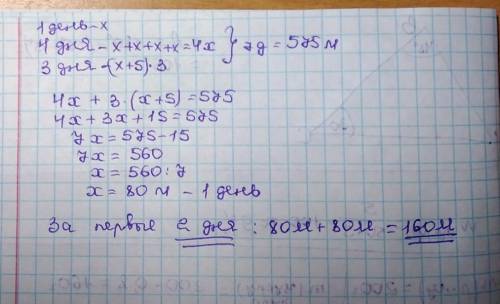 1 день - х
4 дня - х+х+х+х=4х } 7д = 575м
3 дня - (х+5)·3
4х + 3·(х+5)=575
4х+3х+15=575
7х=575-15
7х=560
х=560:7
х=80м - 1 день
За первые 2 дня : 80м+80м =160м